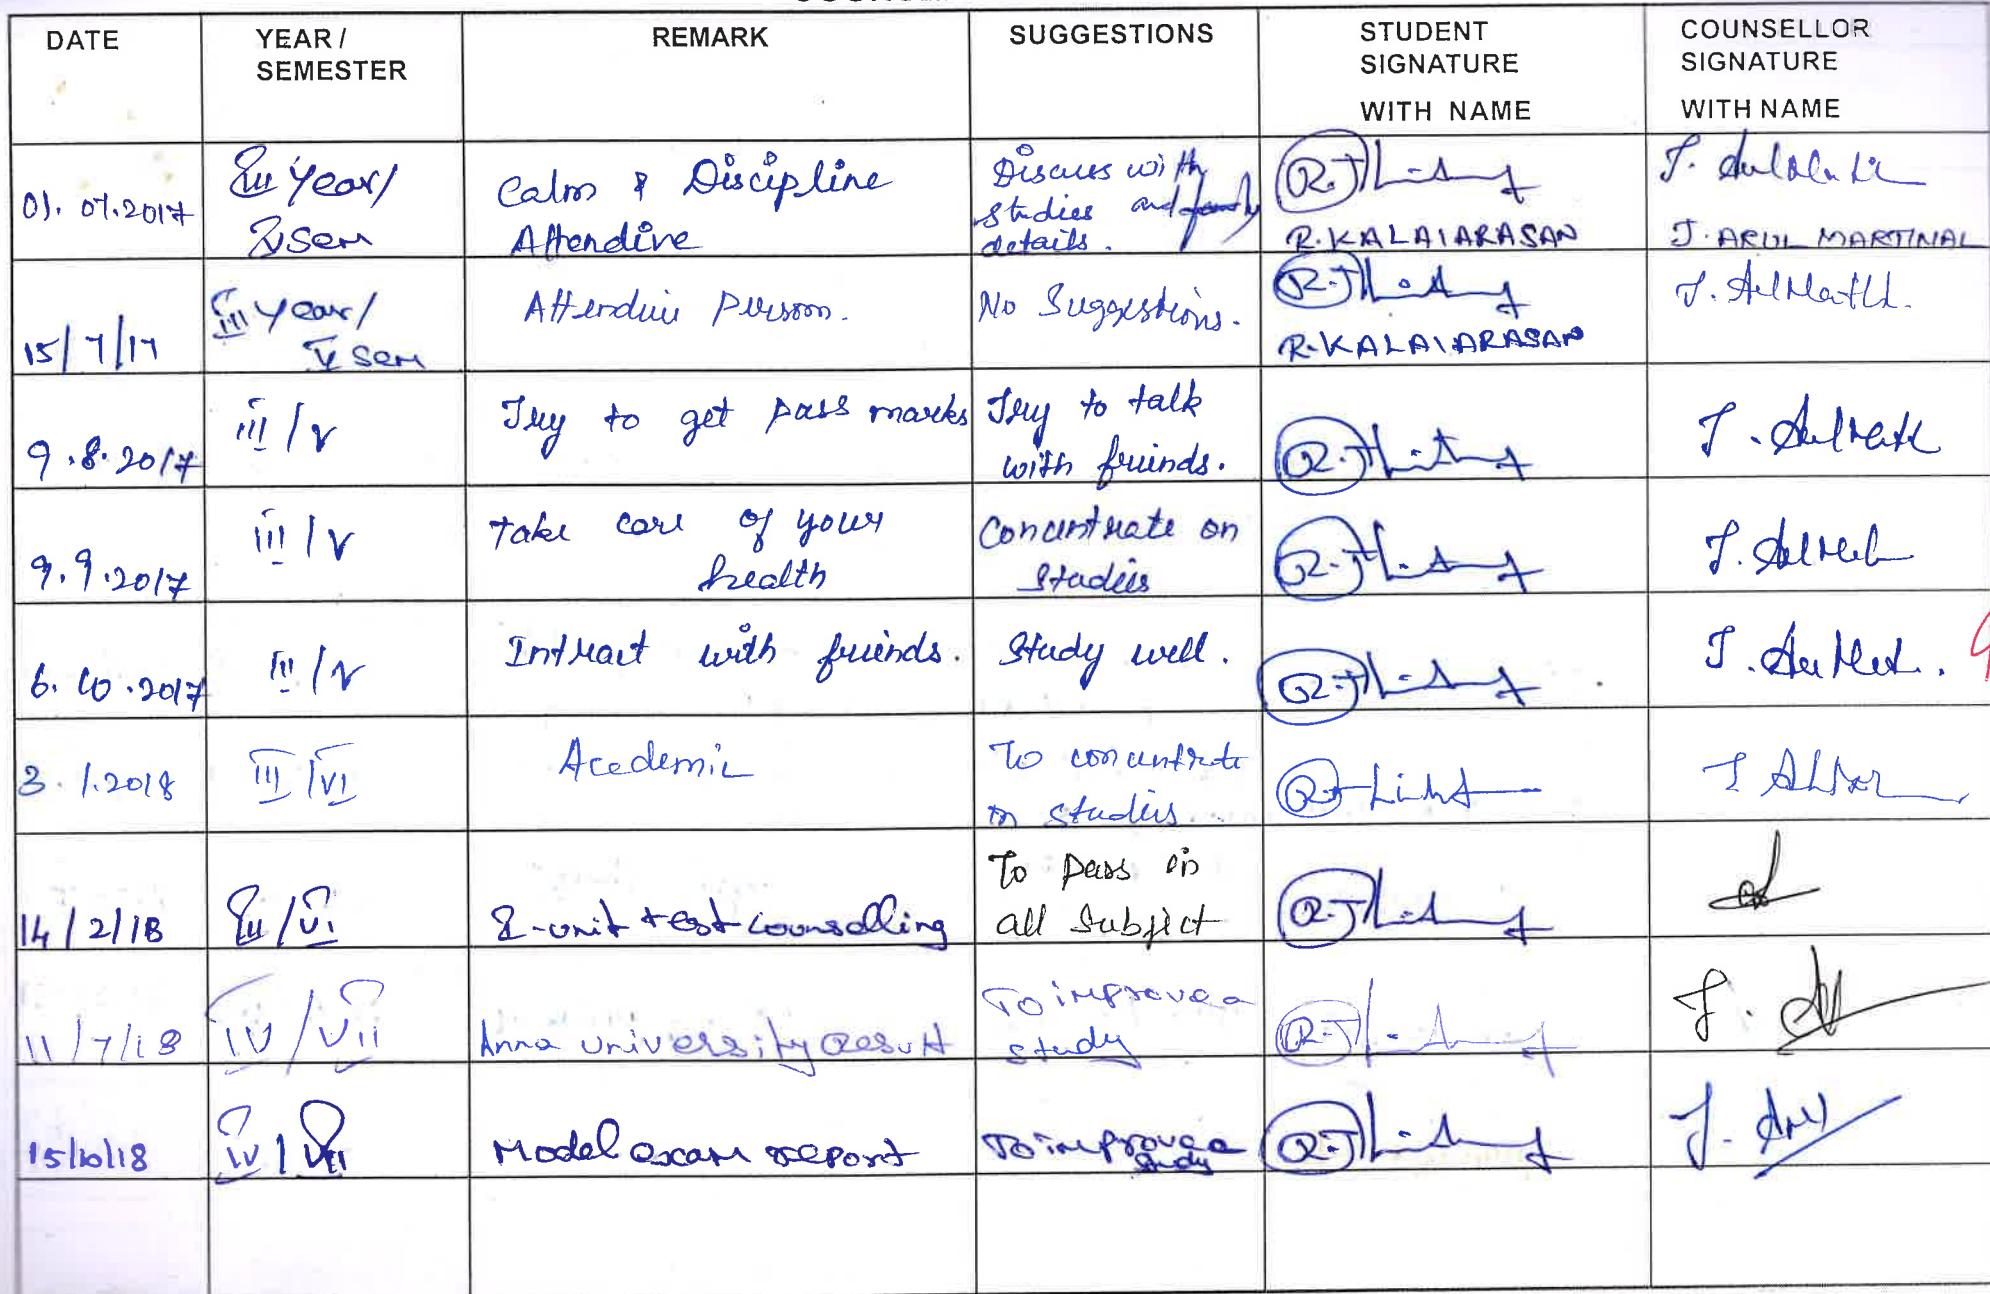 DATE
YEAR /
SEMESTER
REMARK
SUGGESTIONS
STUDENT
SIGNATURE
WITH NAME
COUNSELLOR
SIGNATURE
WITH NAME
01.07.2017
III Year/
V Sem
Calm & Discipline
Attendive
Discuss with
studies and family
details.
R.KALAIARASAN
J. ARUL MARTINAL
15/7/17
III Year/
V Sem
Attendive person.
No Suggestions.
R.KALAIARASAN
9.8.2017
III/V
Try to get pass marks
Try to talk
with friends.
9.9.2017
III/V
Take care of your
health
Concentrate on
Studies
6.10.2017
III/V
Intract with friends.
Study well.
3.1.2018
III/VI
Acedemic
To concentrate
on studies.
14/2/18
III/VI
2-unit test counselling
To pass in
all Subject
11/7/18
IV/VII
Anna University Result
To improve a
study
15/10/18
IV/VII
Model exam report
To improve a
study